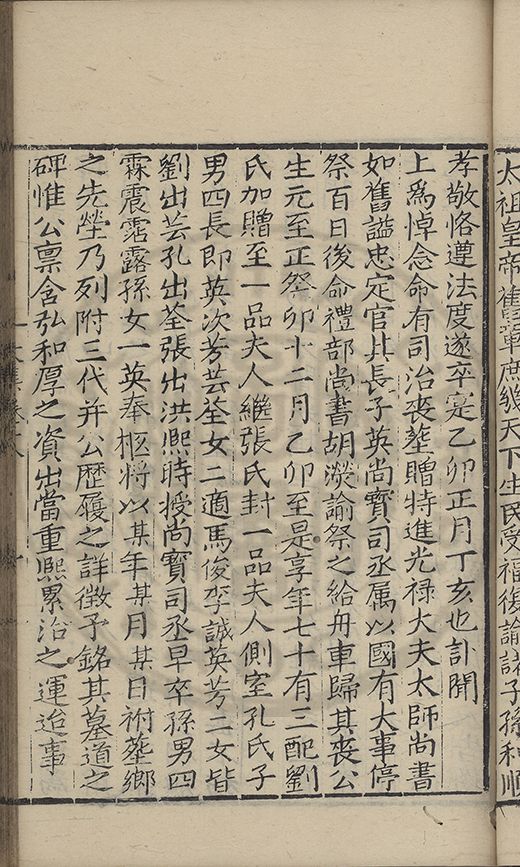 太祖皇帝舊章庶幾天下生民受福復諭諸子孫和順
孝敬恪遵法度遂卒寔乙卯正月丁亥也訃聞
上爲悼念命有司治丧塟贈特進光禄大夫太師尚書
如舊謚忠定官其長子英尚寶司丞属以國有大事停
祭百日後命禮部尚書胡濙諭祭之給舟車歸其丧公
生元至正癸卯十二月乙卯至是享年七十有三配劉
氏加贈至一品夫人繼張氏封一品夫人側室孔氏子
男四長即英次芳芸荃女二適馬俊李誠英芳二女皆
劉出芸孔出荃張出洪熙時授尚寶司丞早卒孫男四
霖震霑露孫女一英奉柩將以某年某月某日祔塟鄉
之先塋乃列附三代并公歷履之詳徵予銘其墓道之
碑惟公禀含弘和厚之資出當重熙累洽之運迨事